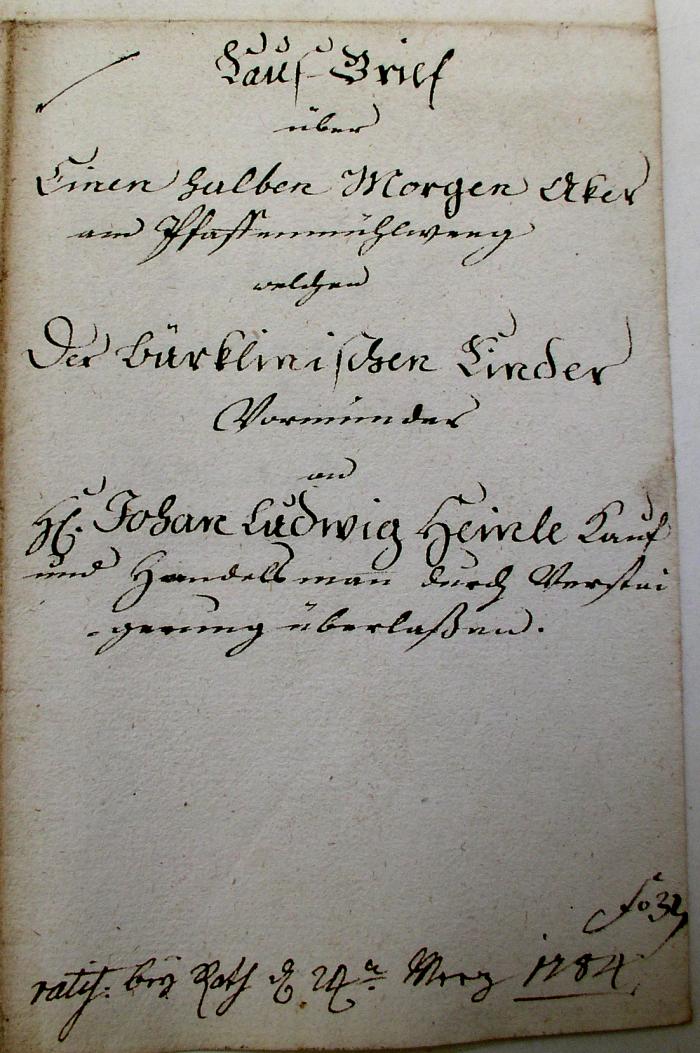 Kauf-Brief
über
Einen halben Morgen Aker
am Pfaffenmühlweeg
welchen
Der Bürklinischen Kinder
Vormünder
an
H. Johan Ludwig Heinle Kauf
und Handelsman durch Verstai
-gerung überlaßen.
fo 32
ratif. bey Rath d. Merz 1784